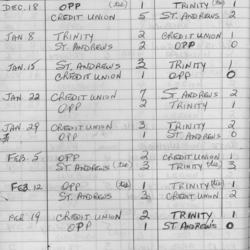 DEC. 18 OPP (tie) 1 TRINITY (tie) 1
CREDIT UNION 5 ST. ANDREWS 2
JAN 8 TRINITY 2 CREDIT UNION 1
ST. ANDREWS 2 OPP 0
JAN. 15 ST. ANDREWS 3 TRINITY 1
CREDIT UNION 1 OPP 0
JAN 22 CREDIT UNION 7 ST. ANDREWS 1
OPP 2 TRINITY 1
JAN 29 CREDIT UNION 3 TRINITY 2
OPP 1 ST. ANDREWS 0
FEB. 5 OPP 2 CREDIT UNION 1
ST. ANDREWS (tie) 3 TRINITY (tie) 3
FEB. 12 OPP (tie) 1 TRINITY (tie) 1
ST. ANDREWS 3 CREDIT UNION 2
FEB 19 CREDIT UNION 2 TRINITY 1
OPP 1 ST. ANDREWS 0